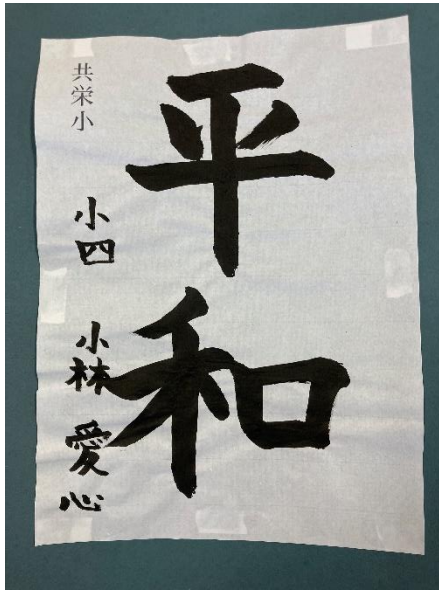 平和
共栄小
小四 小林 愛心